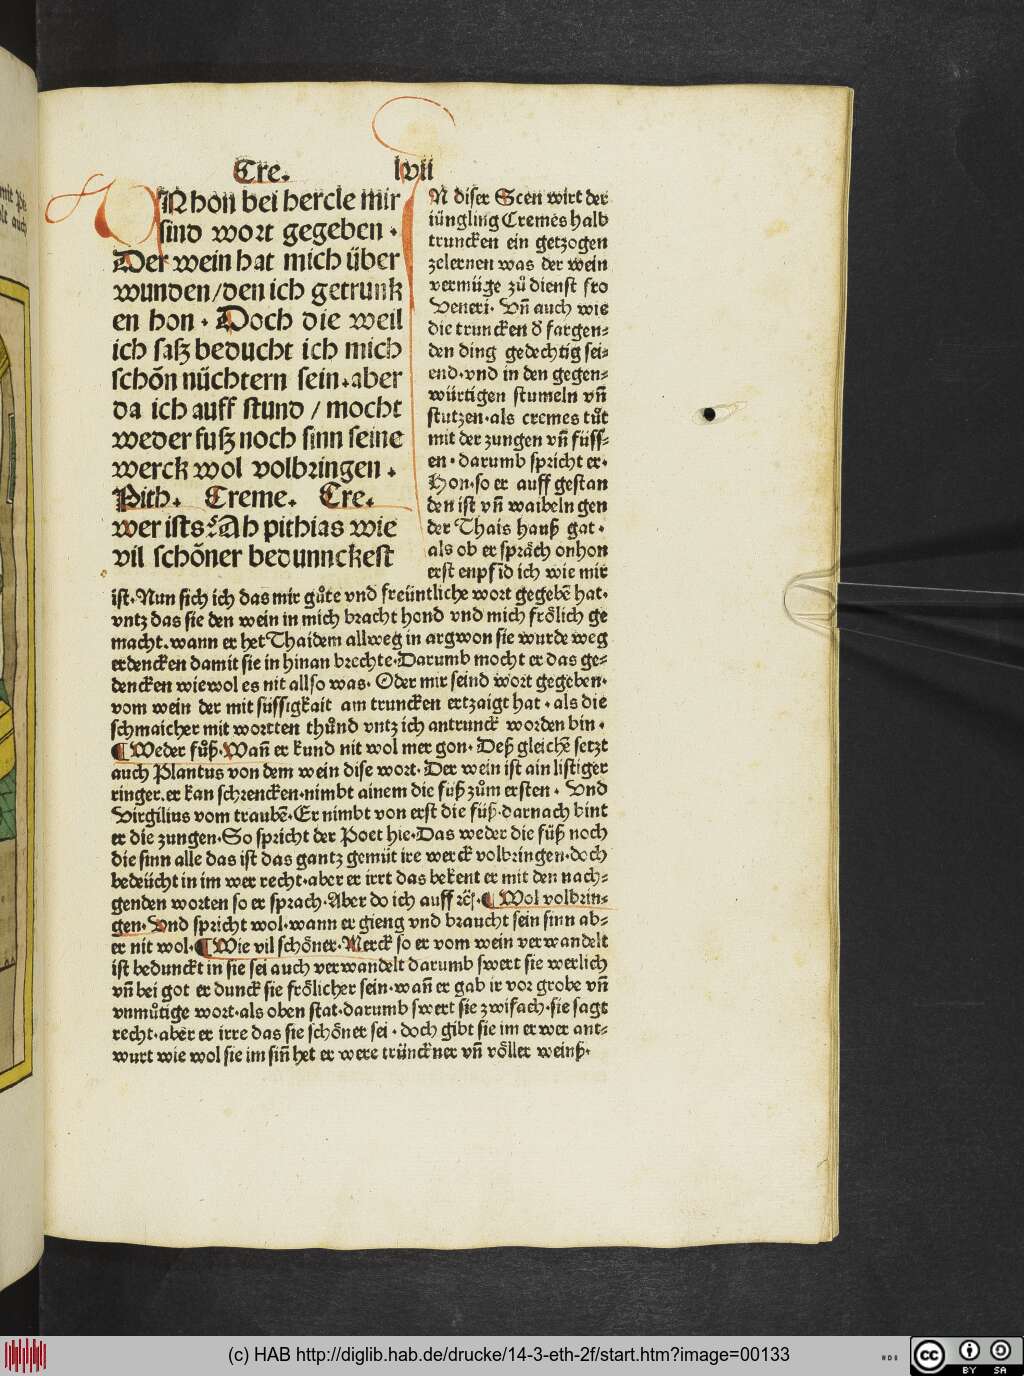 Cre. lvii
ON hon bei hercle mir
sind wort gegeben.
Der wein hat mich über
wunden/den ich getrunk
en hon. Doch die weil
ich saß beducht ich mich
schōn nüchtern sein.aber
da ich auff stund / mocht
weder fuß noch sinn seine
werck wol volbringen.
Pith. Creme. Cre.
wer ists? Ah pithias wie
vil schöner bedunnckest
IN diser Scen wirt der
iüngling Cremes halb
truncken ein getzogen
zelernen was der wein
vermüge zů dienst fro
Veneri. Vñ auch wie
die truncken d̕ fargen=
den ding gedechtig sei=
end.vnd in den gegen=
würtigen stumeln vñ
stutzen.als cremes tůt
mit der zungen vñ füss=
en. darumb spricht er.
Hon.so er auff gestan
den ist vñ waibeln gen
der Thais hauß gat.
als ob er spräch onhon
erst enpfid ich wie mir
ist.Nun sich ich das mir gůte vnd freüntliche wort gegebē hat.
vntz das sie den wein in mich bracht hond vnd mich frölich ge
macht.wann er het Thaidem allweg in argwon sie wurde weg
erdencken damit sie in hinan brechte.Darumb mocht er das ge=
dencken wiewol es nit allso was. Oder mir seind wort gegeben.
vom wein der mit süssigkait am truncken ertzaigt hat. als die
schmaicher mit wortten thůnd vntz ich antrunck worden bin.
¶ Weder fůß.Wañ er kund nit wol mer gon. Deß gleichē setzt
auch Plantus von dem wein dise wort. Der wein ist ain listiger
ringer.er kan schrencken.nimbt ainem die füß zům ersten. Vnd
Virgilius vom traubē.Er nimbt von erst die füß.darnach bint
er die zungen.So spricht der Poet hie.Das weder die füß noch
die sinn alle das ist das gantz gemüt ire werck volbringen.doch
bedeücht in im wer recht.aber er irrt das bekent er mit den nach=
genden worten so er sprach.Aber do ich auff rc̄. ¶ Wol volbrin=
gen. Vnd spricht wol.wann er gieng vnd braucht sein sinn ab=
er nit wol. ¶ Wie vil schöner.Merck so er vom wein verwandelt
ist bedunckt in sie sei auch verwandelt darumb swert sie werlich
vñ bei got er dunck sie frölicher sein.wañ er gab ir vor grobe vñ
vnmůtige wort.als oben stat.darumb swert sie zwifach.sie sagt
recht.aber er irre das sie schöner sei. doch gibt sie im er wer ant=
wurt wie wol sie im siñ het er were trünckner vñ völler weinß.
(c) HAB http://diglib.hab.de/drucke/14-3-eth-2f/start.htm?image=00133